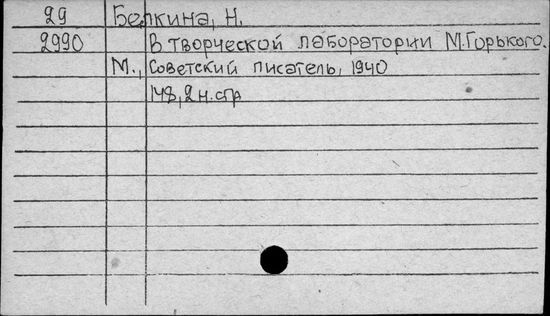 29 Белкина, Н.
2990 В творческой лаборатории М. Горького.
М., Советский писатель, 1940
148, 2 н. стр